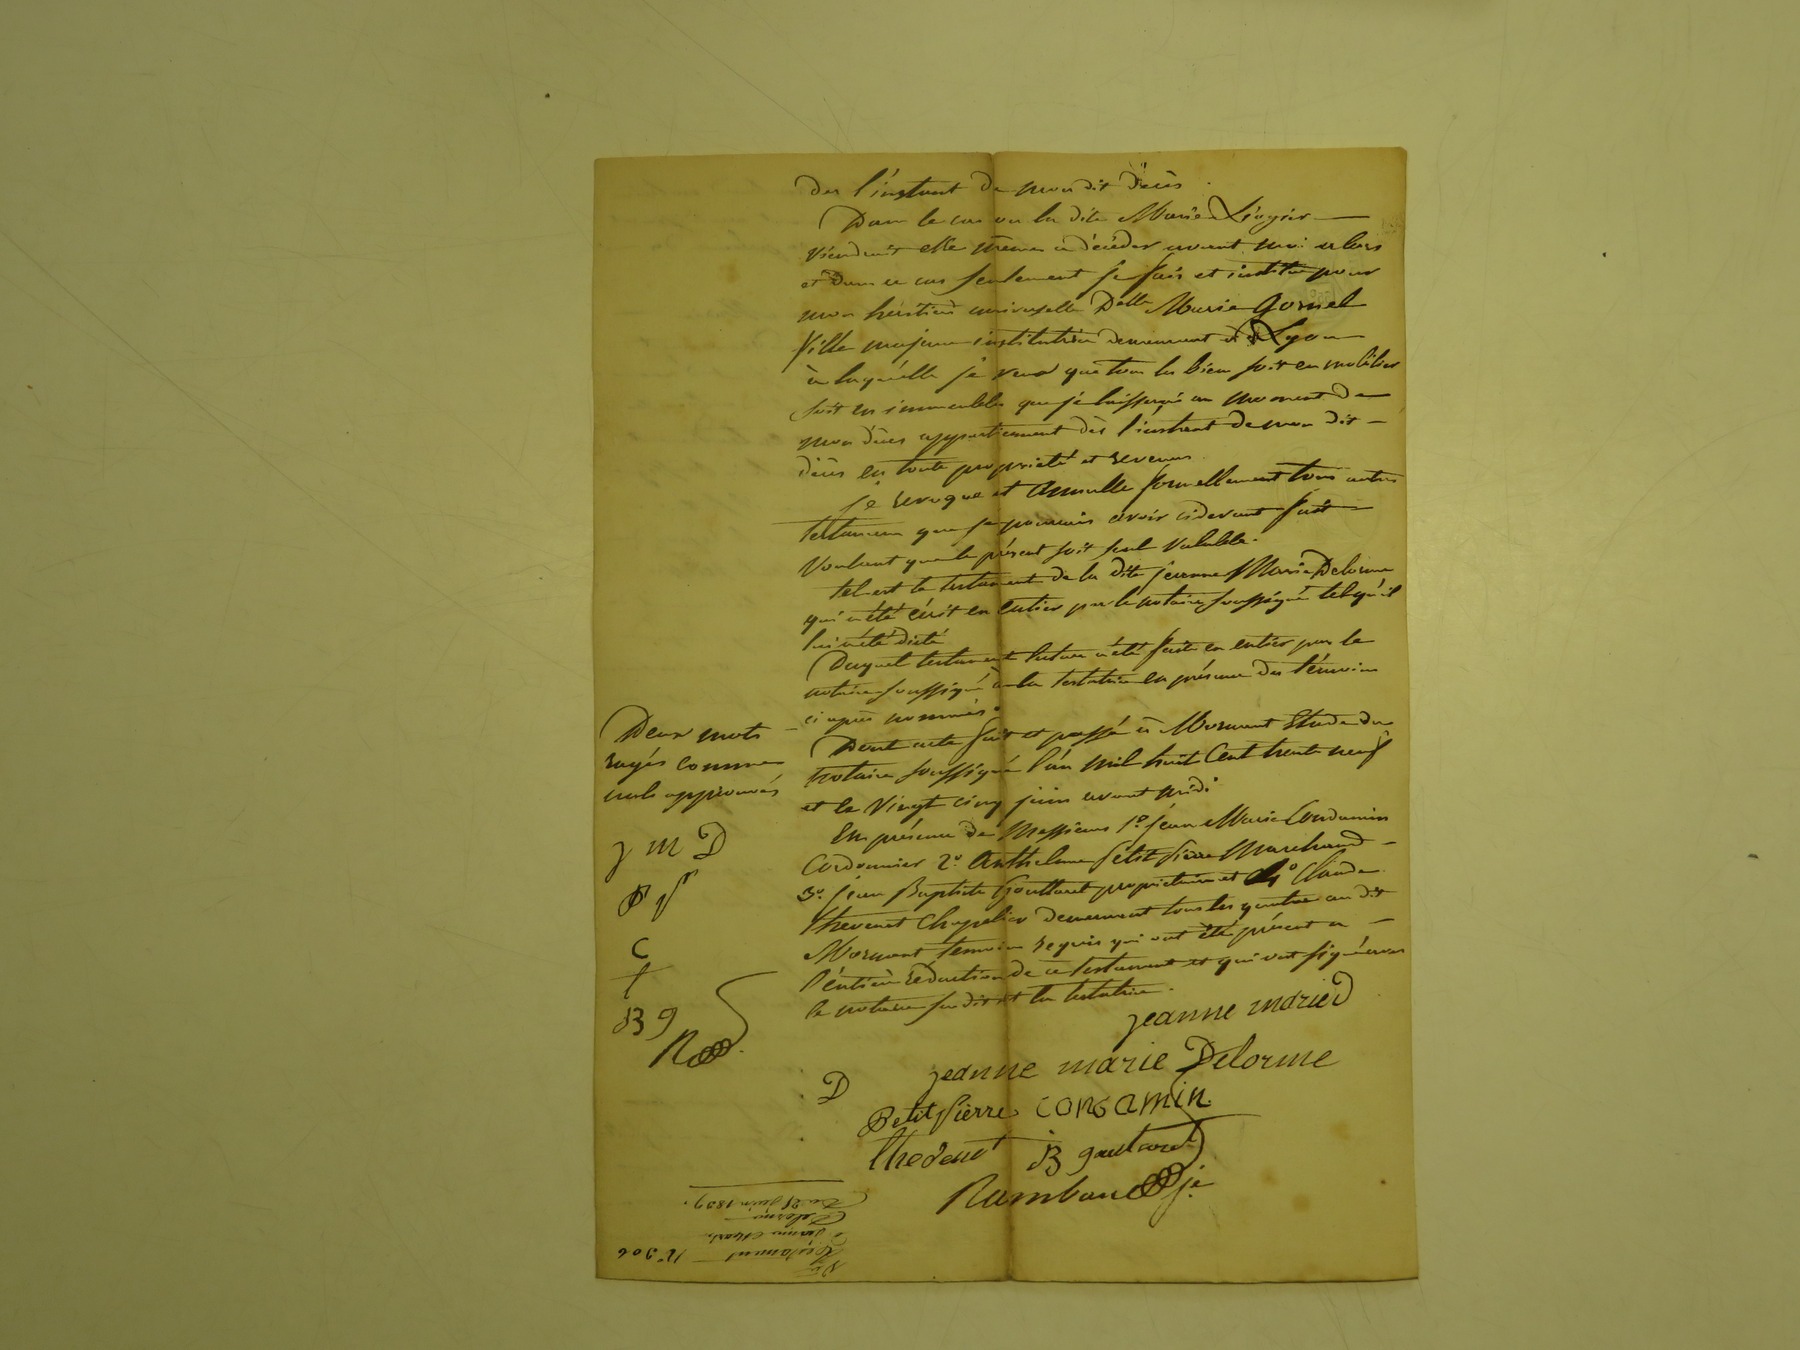 des l'instant de mon dit décès.
Dans le cas ou la dite Marie Liogier
viendrait elle même a décéder avant moi alors
et dans ce cas seulement je fais et institue pour
mon héritière universelle Delle Marie Gornel
fille majeure institutrice demeurant à Lyon
à laquelle je veux que tous les biens soit en mobilier
soit en immeubles que je laisserai au moment de
mon décès appartiennent dès l'instant de mon dit
décès en toute propriété et revenus.
je revoque et annulle formellement tous autres
testamens que je pourrais avoir cidevant fait
voulant que le présent soit seul valable.
tel est le testament de la dite jeanne Marie Delorme
qui a été écrit en entier par le notaire soussigné tel qu'il
lui a été dicté
Duquel testament lecture a été faite en entier par le
notaire soussigné à la testatrice en présence des témoins
ci après nommés.
Dont acte fait et passé à Mornant Etude du
notaire soussigné l'an mil huit cent trente neuf
et le vingt cinq juin avant midi
En présence de Messieurs 1º. jean Marie Condamin
Cordonnier 2º. Anthelme Petit pierre Marchand
3º. jean Baptiste Gouttard propriétaire et 4º Claude
thevenet Chapelier demeurant tous les quatre au dit
Mornant temoins requis qui ont été présent a
l'entière rédaction de ce testament et qui ont signé avec
le notaire susdit et la testatrice.
Deux mots
rayés comme
nuls approuvés
J m D
P p
C
t
B g
R
jeanne marie D
jeanne marie Delorme
D
Petit pierre condamin
thevenet B goutard
Rambaud
Nº 306
Testament
Jeanne Marie
Delorme
Du 25 juin 1839.